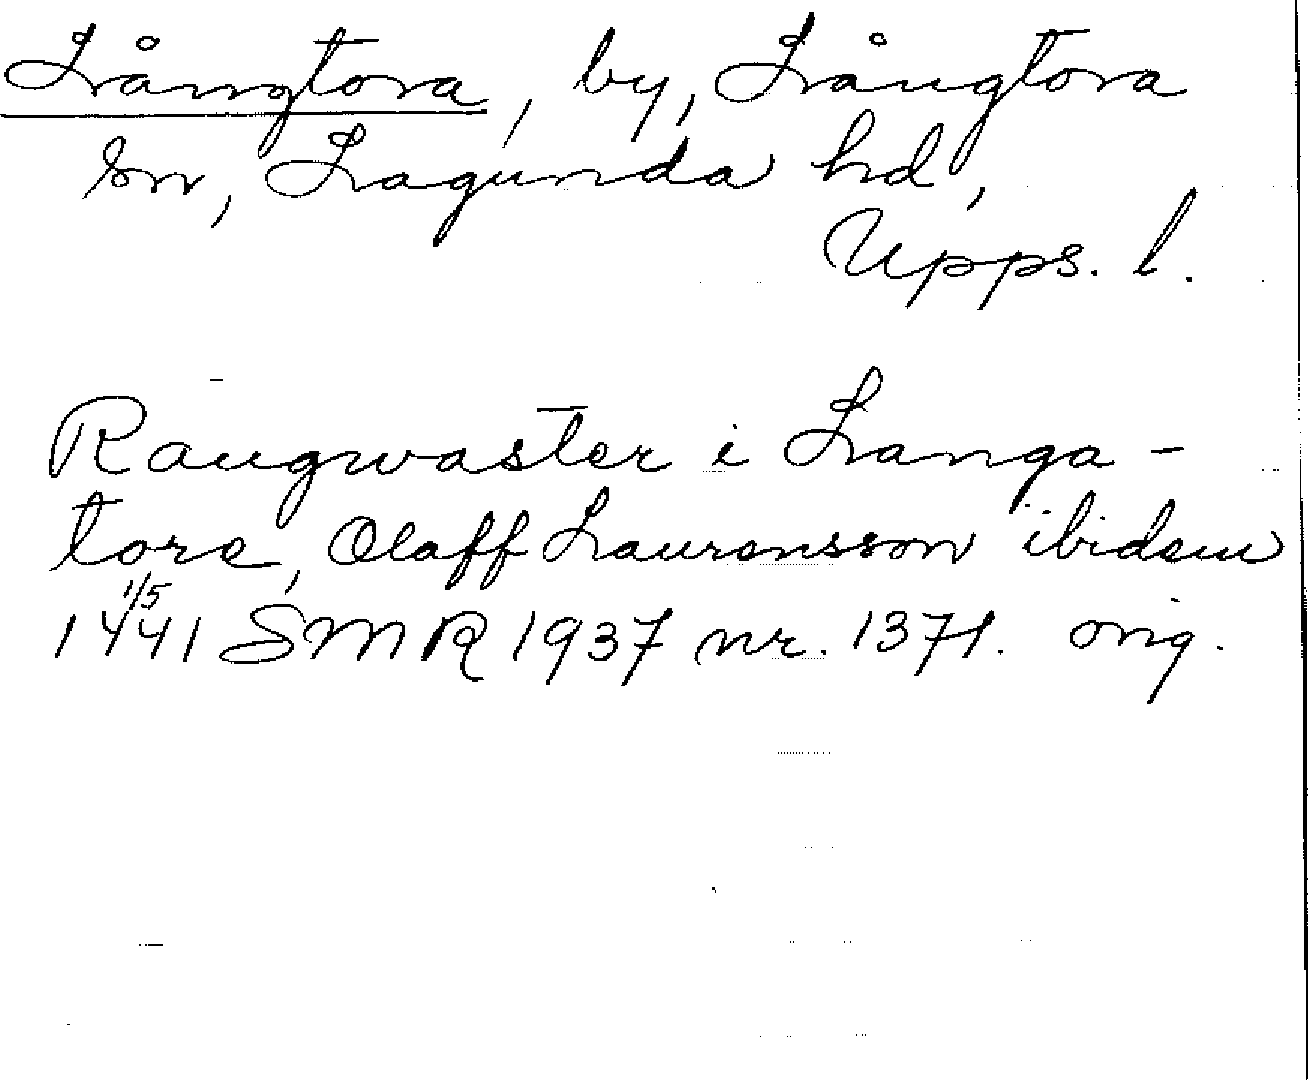 Långtora, by, Långtora
sn, Lagunda hd,
Upps. l.
Rangwaster i Langa-
tore, Olaff Laurensson ibidem
1/5
1441 SMR 1937 nr. 1371. orig.